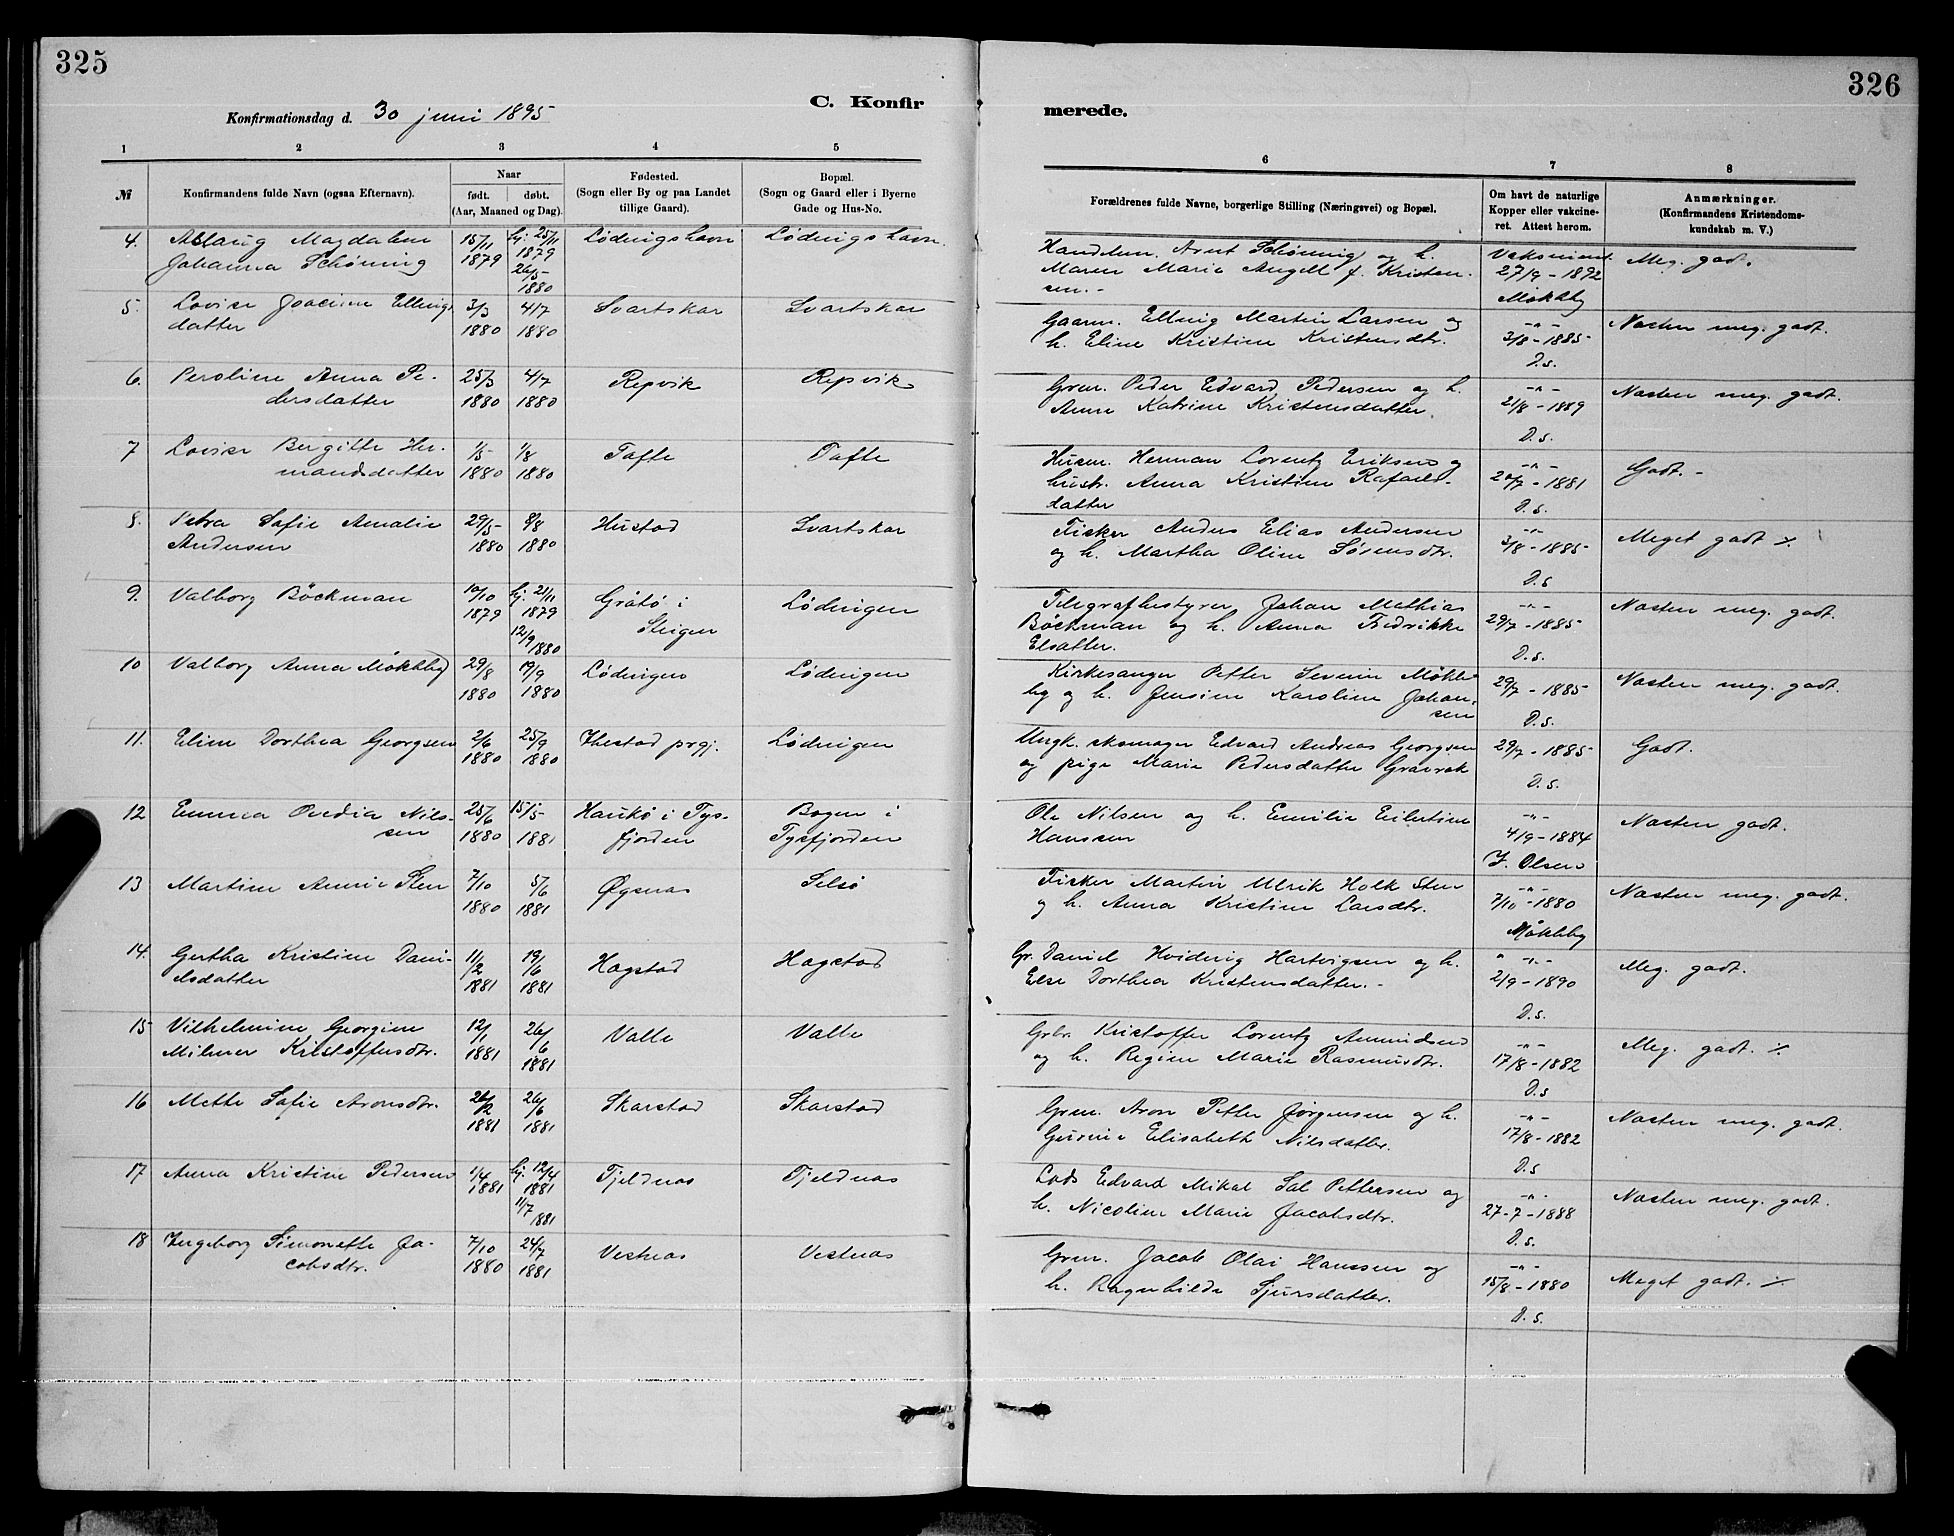 325
326
C. Konfirmerede.
Konfirmationsdag d. 30 juni 1895
1 2 3 4 5 6 7 8
№
Konfirmandens fulde Navn (ogsaa Efternavn).
Naar
født. døbt.
(Aar, Maaned og Dag).
Fødested.
(Sogn eller By og paa Landet
tillige Gaard).
Bopæl.
(Sogn og Gaard eller i Byerne
Gade og Hus-No.
Forældrenes fulde Navne, borgerlige Stilling (Næringsvei) og Bopæl.
Om havt de naturlige
Kopper eller vakcine-
ret. Attest herom.
Anmærkninger.
(Konfirmandens Kristendoms-
kundskab m. V.)
4. Aslaug Magdalena
Johanna Schöning
15/11 1879
hj. 25/11 1879
26/5 1880
Lødingshavn
Lødingshavn.
Handelsm. Arnt Schöning og h.
Maren Marie Angell f. Kristen-
sen.-
Vaksineret
27/9-1892
Møkleby
Meg. godt.
5. Lovise Joacime Ellings
datter
3/3 1880
4/7 1880
Svartskar
Svartskar
Gaarm. Elling Martin Larsen og
h. Eline Kristine Kristensdtr.
-"-
3/8-1885
D.s.
Næsten meg. godt.
6. Peroline Anna Pe-
dersdatter
25/3 1880
4/7 1880
Repvik
Repvik
Grm. Peder Edvard Pedersen og h.
Anne Katrine Kristensdatter.
-"-
21/8-1889
D.s.
Næsten meg. godt.
7 Lovise Bergitte Her-
mandsdatter
1/5 1880
1/8 1880
Tafte
Tafte
Husm. Herman Lorentz Eriksen og
hustr. Anna Kristine Rafaels-
datter
-"-
20/7-1881
D.s.
Godt.-
8. Petra Sofie Amalie
Andersen
29/5 1880
8/8 1880
Hustad
Svartskar
Fisker Anders Elias Andersen
og h. Martha Oline Sørensdtr.
-"-
3/8-1885
D.s
Meget godt ٪.
9. Valborg Böckman
10/10 1879
hj. 21/11 1879
12/9 1880
Gråtö i
Steigen
Lødingen
Telegrafbestyrer Johan Mathias
Böckman og h. Anna Fredrikke
-"-
29/7-1885
D.s.
Næsten meg. godt.
10 Valborg Anna Møkleby
29/8 1880
19/9 1880
Lødingen
Lødingen
Kirkesanger Petter Severin Møkle-
by og h. Jensine Karoline Johan-
sen
29/7-1885
D.s.
Næsten meg. godt.
11. Eline Dorthea Georgsen
2/6 1880
25/9 1880
Ibestad prgj.
Lødingen
Ungk. skomager Edvard Andreas Georgsen
og pige Marie Pedersdatter
29/7-1885
D.s.
Godt.
12 Emma Ovedia Nils-
sen
25/6 1880
15/5 1881
Haukö i Tys-
fjorden
Bogen i
Tysfjorden
Ole Nilsen og h. Emilie Eilertine
Hanssen
-"-
4/9-1884
J. Olsen
Næsten godt.
13 Martine Annie Sten
7/10 1880
5/6 1881
Øgsnæs
Selsö
Fisker Martin Ulrik Holk Sten
og h. Anna Kristine Larsdtr.
-"-
7/11-1880
Møkleby
Næsten meg. godt.
14. Gertha Kristine Dani-
elsdatter
11/2 1881
19/6 1881
Hagstad
Hagstad
Gr. Daniel Hviding Hartvigsen og h.
Else Dorthea Kristensdatter.-
-"-
2/9-1890
D.s.
Meg. godt.
15 Vilhelmine Georgine
Milmer Kristoffersdtr.
12/1 1881
26/6 1881
Valle
Valle
Grbr. Kristoffer Lorentz Amundsen
og h. Regine Marie Rasmusdtr.
-"-
17/8-1882
D.s
Meg. godt. ٪.
16 Mette Sofie Aronsdtr.
26/12 1881
26/6 1881
Skarstad
Skarstad
Grm. Aron Petter Jørgensen og h.
Gurine Elisabeth Nilsdatter.
-"-
17/8-1882
D.s
Næsten meg. godt.
17 Anna Kristine Pedersen
1/4 1881
hj. 12/4 1881
11/7 1881
Tjeldnæs
Tjeldnæs
Lods Edvard Mikal Sal Pettersen og
h. Nicoline Marie Jacobsdtr.
-"-
27-7-1888
D.s.
Næsten meg. godt.
18 Ingeborg Simonette Ja-
cobsdtr.
7/10 1880
24/7 1881
Vestnæs
Vestnæs
Grm. Jacob Olai Hanssen og
h. Ragnhilda Sjursdatter.
-"-
15/8-1880
D.s.
Meget godt. ٪